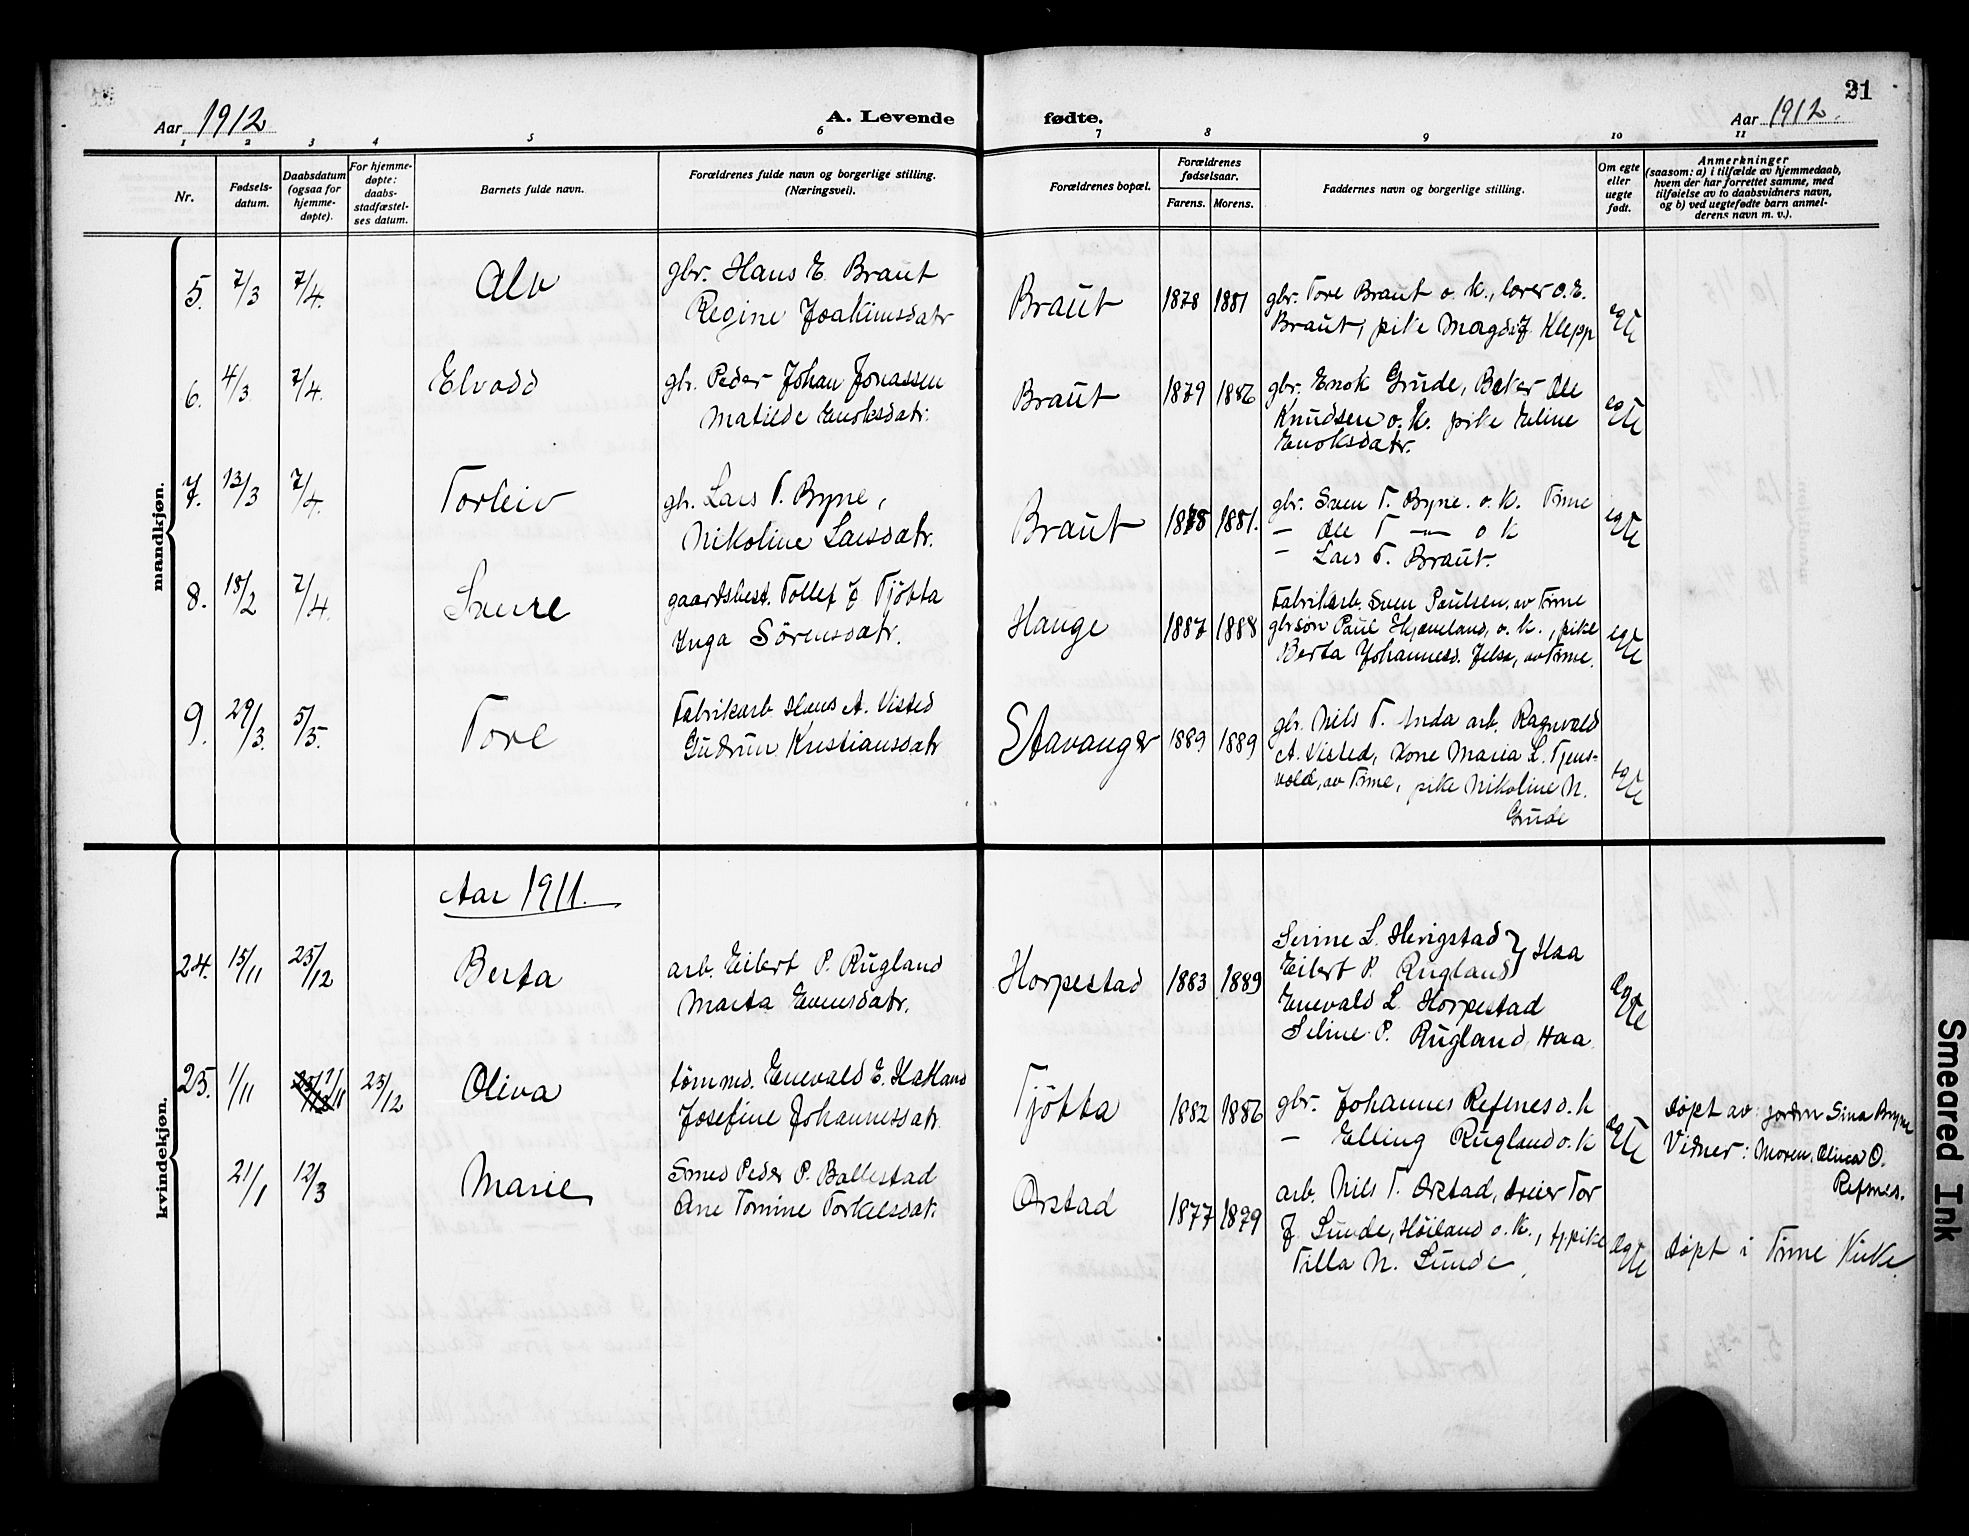 21
Aar 1912
A. Levende fødte.
Aar 1912.
1 2 3 4 5 6 7 8 9 10 11
Nr.
Fødsels-
datum.
Daabsdatum
(ogsaa for
hjemme-
døpte).
For hjemme-
døpte:
daabs-
stadfæstel-
ses datum.
Barnets fulde navn.
Forældrenes fulde navn og borgerlige stilling.
(Næringsvei).
Forældrenes bopæl.
Forældrenes
fødselsaar.
Farens. Morens.
Faddernes navn og borgerlige stilling.
Om egte
eller
uegte
født.
Anmerkninger
(saasom: a) i tilfælde av hjemmedaab,
hvem der har forrettet samme, med
tilføielse av to daabsvidners navn,
og b) ved uegtefødte barn anmel-
derens navn m. v.).
mandkjøn.
5. 7/3 7/4. Alv
gbr. Hans E. Braut
Regine Joakimsdatr
Braut 1878 1881
gbr. Tore Braut o. k., lærer O. E.
Braut, pike Magda J. Klepp
egte
6. 4/3. 7/4. Elvadd
gbr. Peder Johan Jonassen
Matilde Enoksdatr.
Braut 1879 1886
gbr. Enok Grude, Baker Ole
Knudsen o. k. pike Eline
Enoksdatr.
egte
7. 13/3 7/4. Torleiv
gbr. Lars T. Bryne,
Nikoline Larsdatr.
Braut 1878 1881.
gbr. Sven T. Bryne. o. k. Time
— Ole T — o k
— Lars T. Braut.
egte
8. 18/2 7/4. Sverre
gaardsbest. Tollef J Tjötta
Inga Sörensdatr.
Hauge 1887 1888
Fabrikarb. Sven Paulsen, av Time
gbrsön Paul Skjæveland, o. k., pike
Berta Johannesd. Jelsa, av Time.
egte
9. 29/3. 5/5. Tore
Fabrikarb. Hans A. Visted
Gudrun Kristiansdatr
Stavanger 1889 1889
gbr. Nils T. Anda arb. Ragnvald
A. Visted, Kone Maria L. Tjens-
vold, av Time, pike Nikoline N.
Grude
egte
kvindekjøn.
Aar 1911.
24. 15/11 25/12 Berta
arb. Eilert P. Rugland
Marta Evensdatr.
Horpestad 1883 1889
Serine L. Herigstad } Haa
Eilert P. Rugland
Enevald L Horpestad
Seline P. Rugland, Haa.
egte
25. 1/11 1/11 25/12 Oliva
tömmd. Enevald E. Hatland
Josefine Johannesdatr.
Tjötta 1882 1886
gbr. Johannes Refsnes o. k
— Elling Rugland o. k
egte
döpt av jordm Sina Bryne
Vidner: Moren, Olina O.
Refsnes.
21/1 12/3 Marie
Smed Peder P. Ballestad
Ane Tomine Torkelsdatr.
Orstad 1877 1879
arb. Nils T. Orstad, dreier Tor
J. Sunde, Höiland o. k., tj.pike
Tilla N. Sunde
egte
döpt i Time Kirke.
Smeared Ink